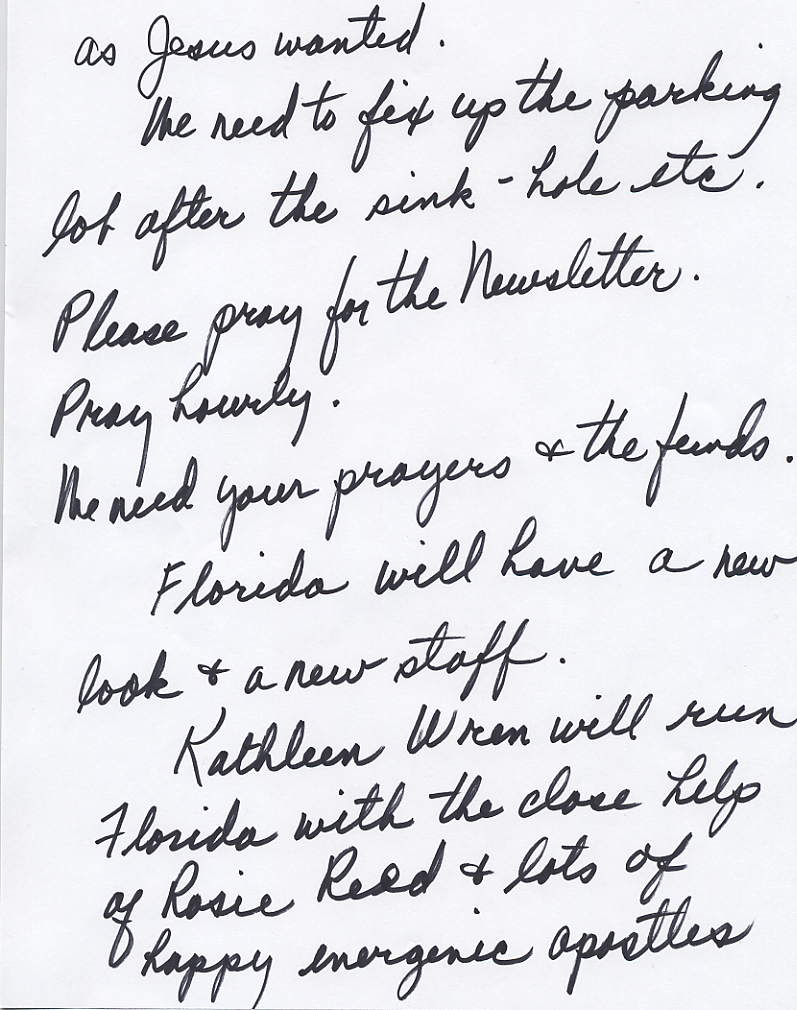 as Jesus wanted.
We need to fix up the parking
lot after the sink-hole etc.
Please pray for the Newsletter.
Pray hourly.
We need your prayers & the funds.
Florida will have a new
look & a new staff.
Kathleen Wren will run
Florida with the close help
of Rosie Reed & lots of
happy energenic apostles